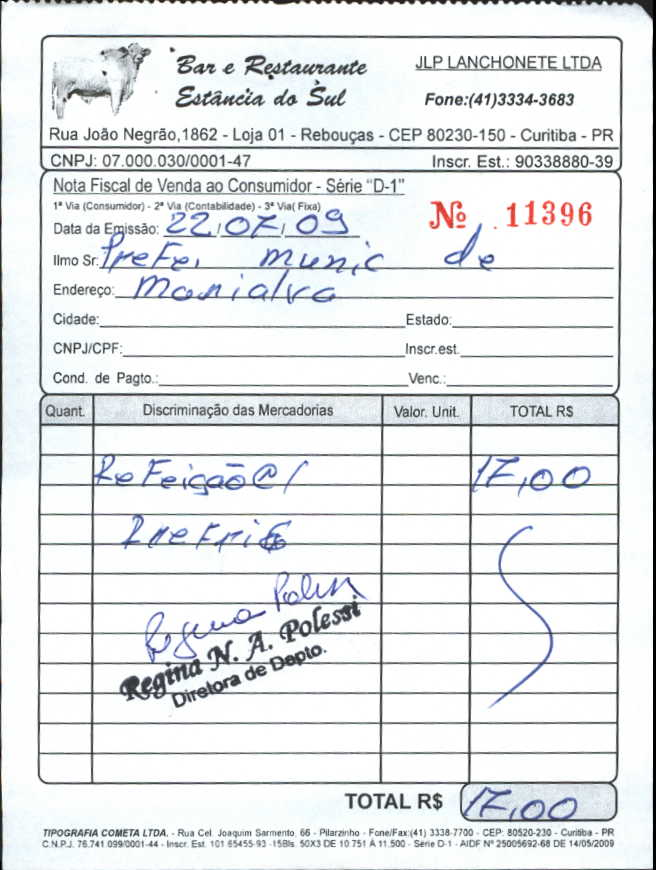 Bar e Restaurante
Estância do Sul
JLP LANCHONETE LTDA
Fone:(41)3334-3683
Rua João Negrão,1862 - Loja 01 - Rebouças - CEP 80230-150 - Curitiba - PR
CNPJ: 07.000.030/0001-47 Inscr. Est.: 90338880-39
Nota Fiscal de Venda ao Consumidor - Série "D-1"
1ª Via (Consumidor) - 2ª Via (Contabilidade) - 3ª Via( Fixa)
Nº 11396
Data da Emissão: 22/07/09
Ilmo Sr: Prefei munic de
Endereço: Marialva
Cidade: Estado:
CNPJ/CPF: Inscr.est.
Cond. de Pagto.: Venc.:
Quant. Discriminação das Mercadorias Valor. Unit. TOTAL R$
Refeição 17,00
Regina N. A. Polessi
Diretora de Depto.
TOTAL R$ 17,00
TIPOGRAFIA COMETA LTDA. - Rua Cel. Joaquim Sarmento, 66 - Pilarzinho - Fone/Fax:(41) 3338-7700 - CEP: 80520-230 - Curitiba - PR
C.N.P.J. 76.741.099/0001-44 - Inscr. Est. 101.65455-93 -15Bls. 50X3 DE 10.751 À 11.500 - Série D-1 - AIDF Nº 25005692-68 DE 14/05/2009